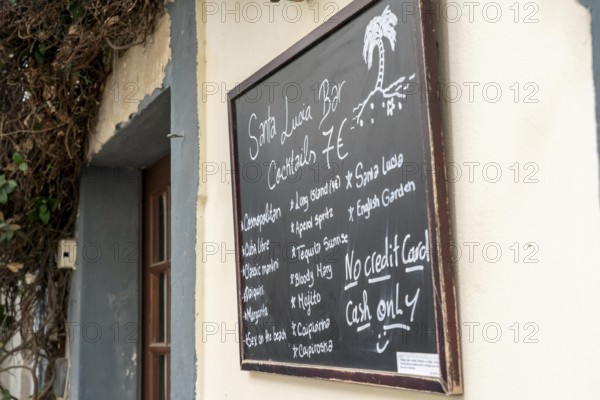 Santa Lucia Bar
Cocktails 7€
*Cosmopolitan
*Cuba Libre
*Classic martini
*Daiquiri
*Margarita
*Sex on the beach
* Long Island (9€)
* Aperol spritz
* Tequila Sunrise
* Bloody Mary
* Mojito
* Caipirinha
* Caipiroska
* Santa Lucia
* English Garden
No credit Card
Cash only